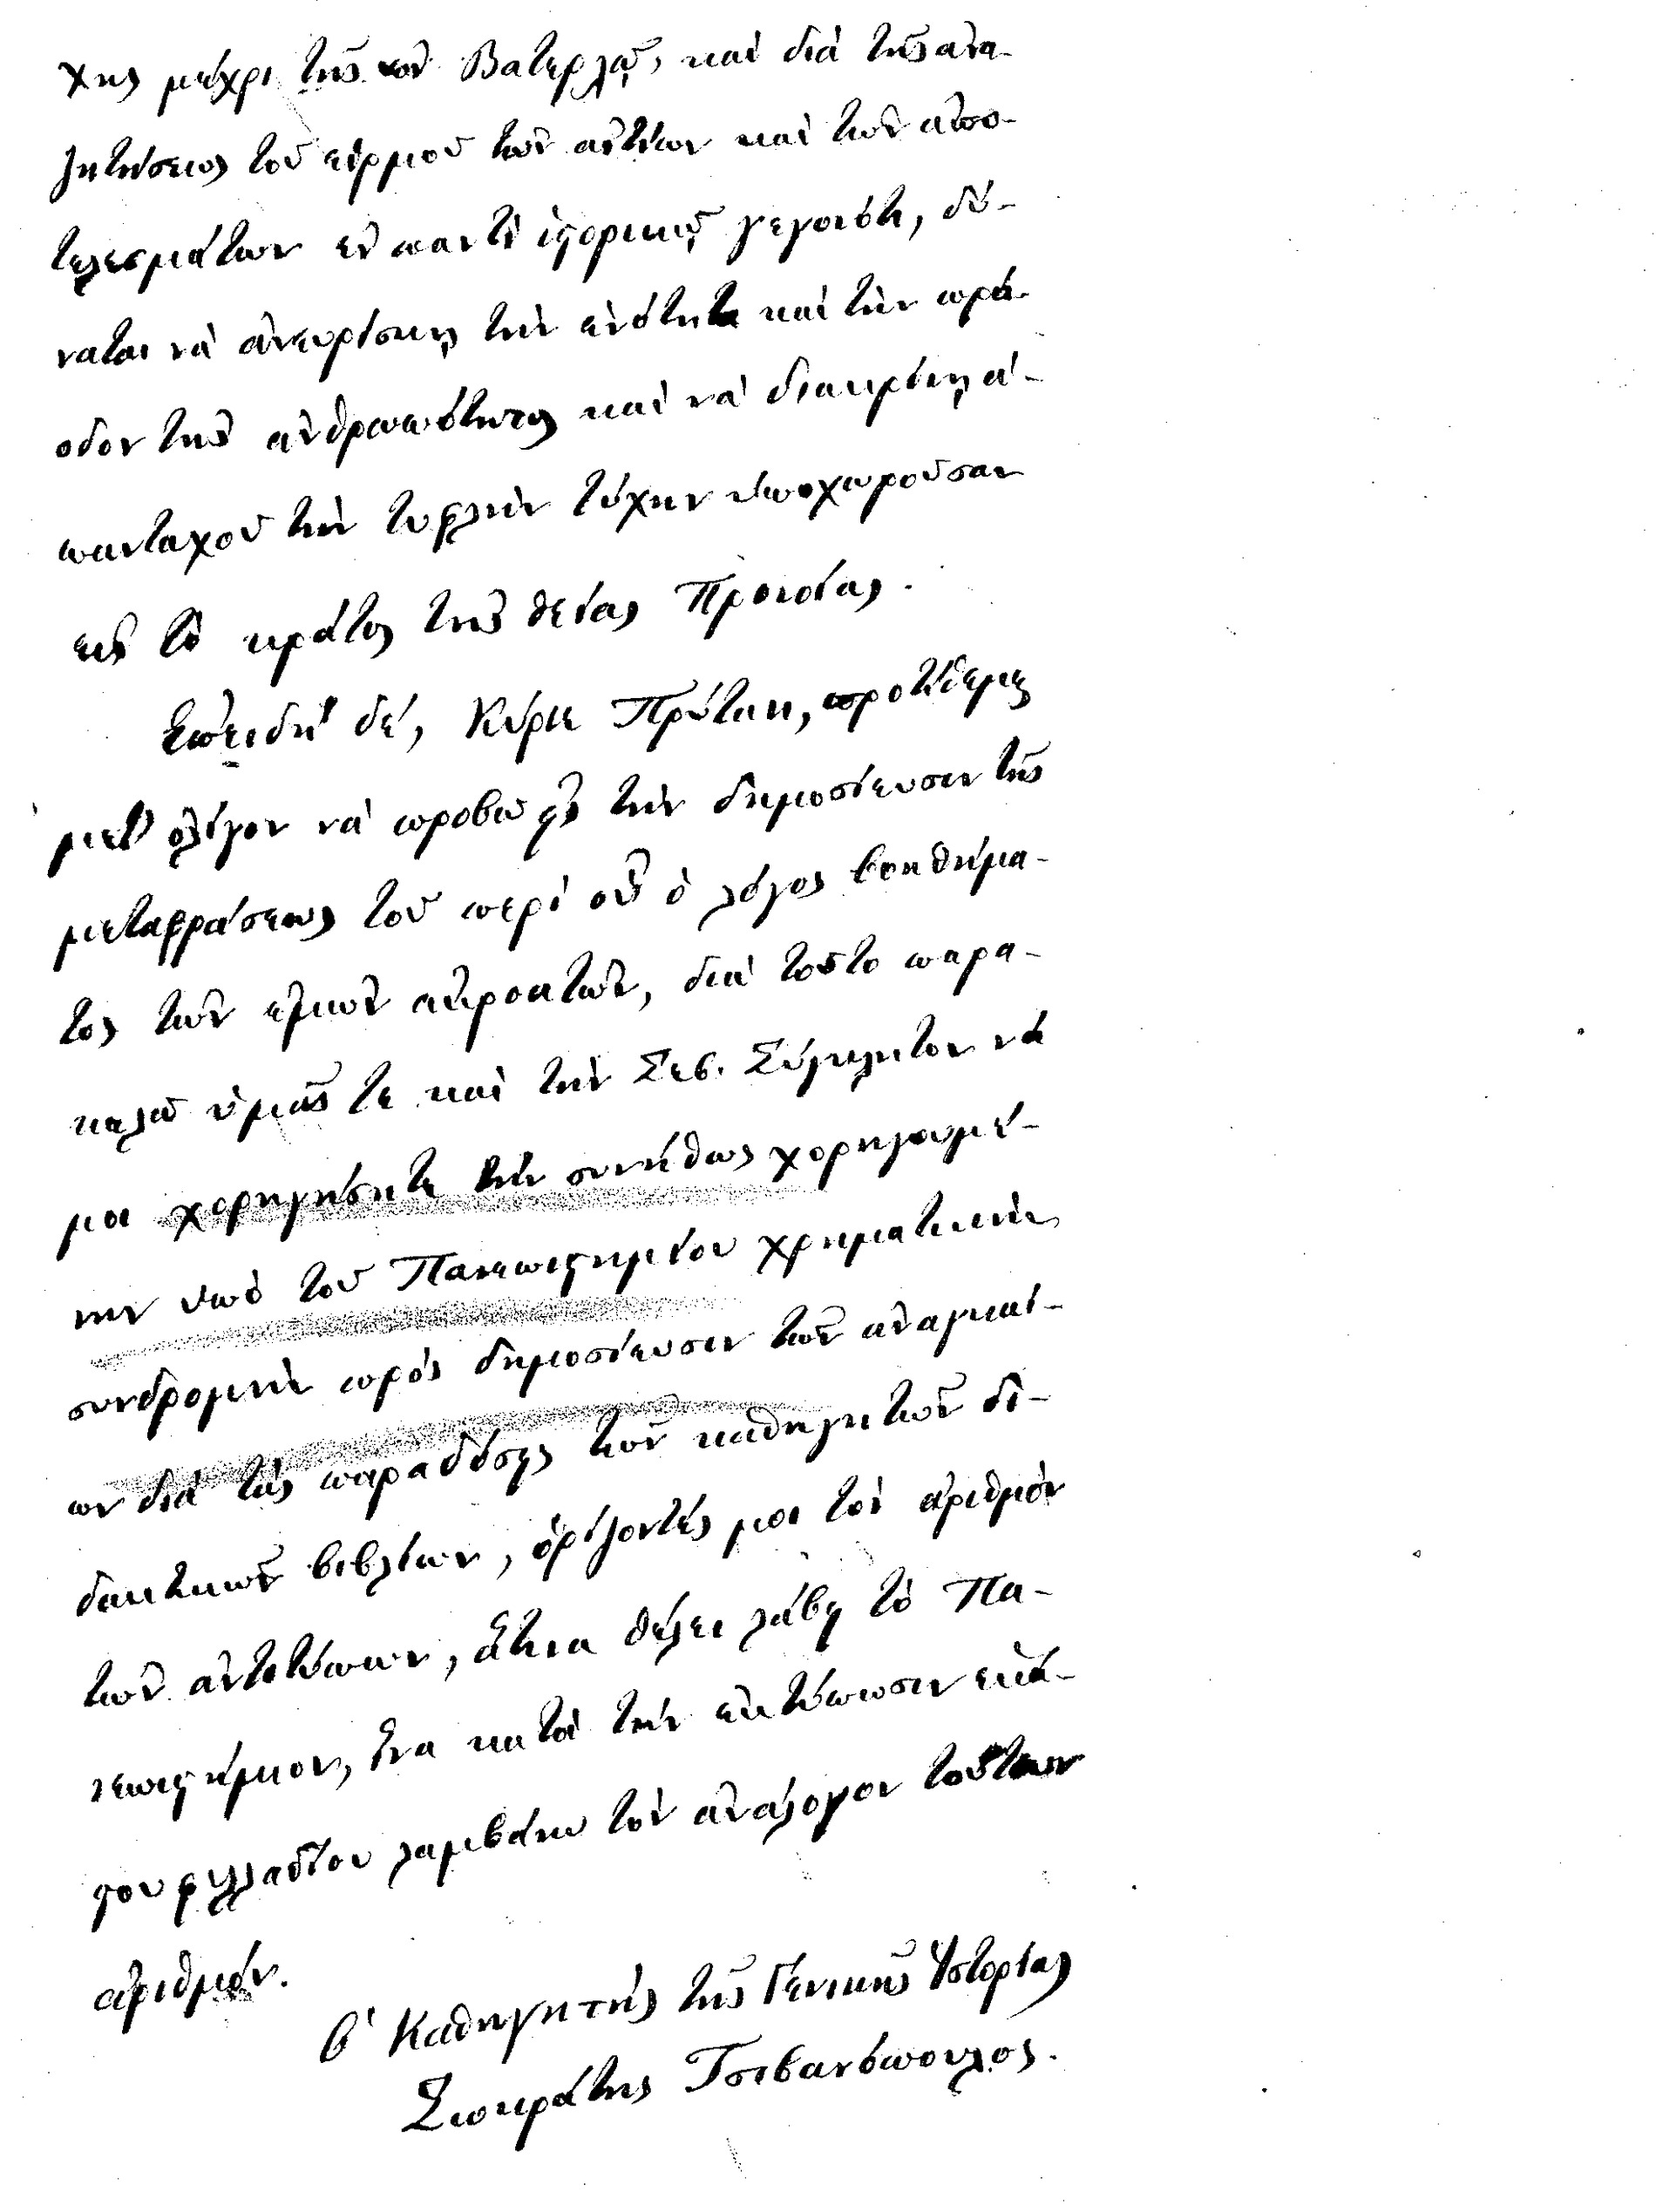 χης μέχρι τῆς τοῦ Βατερλῷ, καὶ διὰ τῆς ἀνα-
ζητήσεως τοῦ εἱρμοῦ τῶν αἰτίων καὶ τῶν ἀπο-
τελεσμάτων ἐν παντὶ ἱστορικῷ γεγονότι, δύ-
ναται νὰ ἀνευρίσκῃ τὴν ἑνότητα καὶ τὴν πρό-
οδον τῆς ἀνθρωπότητος καὶ νὰ διακρίνῃ ἁ-
πανταχοῦ τὴν τυφλὴν τύχην ὑποχωροῦσαν
εἰς τὸ κράτος τῆς θείας Προνοίας.
Ἐπειδὴ δέ, Κύριε Πρύτανι, προτίθεμαι
μετ' ὀλίγον νὰ προβῶ εἰς τὴν δημοσίευσιν τῆς
μεταφράσεως τοῦ περὶ οὗ ὁ λόγος βοηθήμα-
τος τῶν ἐμῶν ἀκροατῶν, διὰ τοῦτο παρα-
καλῶ ὑμᾶς τε καὶ τὴν Σεβ. Σύγκλητον νά
μοι χορηγήσητε τὴν συνήθως χορηγουμέ-
νην ὑπὸ τοῦ Πανεπιστημίου χρηματικὴν
συνδρομὴν πρὸς δημοσίευσιν τῶν ἀναγκαί-
ων διὰ τὰς παραδόσεις τῶν καθηγητῶν δι-
δακτικῶν βιβλίων, ὁρίζοντές μοι τὸν ἀριθμὸν
τῶν ἀντιτύπων, ἅτινα θέλει λάβῃ τὸ Πα-
νεπιστήμιον, ἵνα κατὰ τὴν ἐκτύπωσιν ἑκά-
στου φυλλαδίου λαμβάνω τὸν ἀνάλογον τούτων
ἀριθμόν.
Ὁ Καθηγητὴς τῆς Γενικῆς Ἱστορίας
Σωκράτης Τσιβανόπουλος.